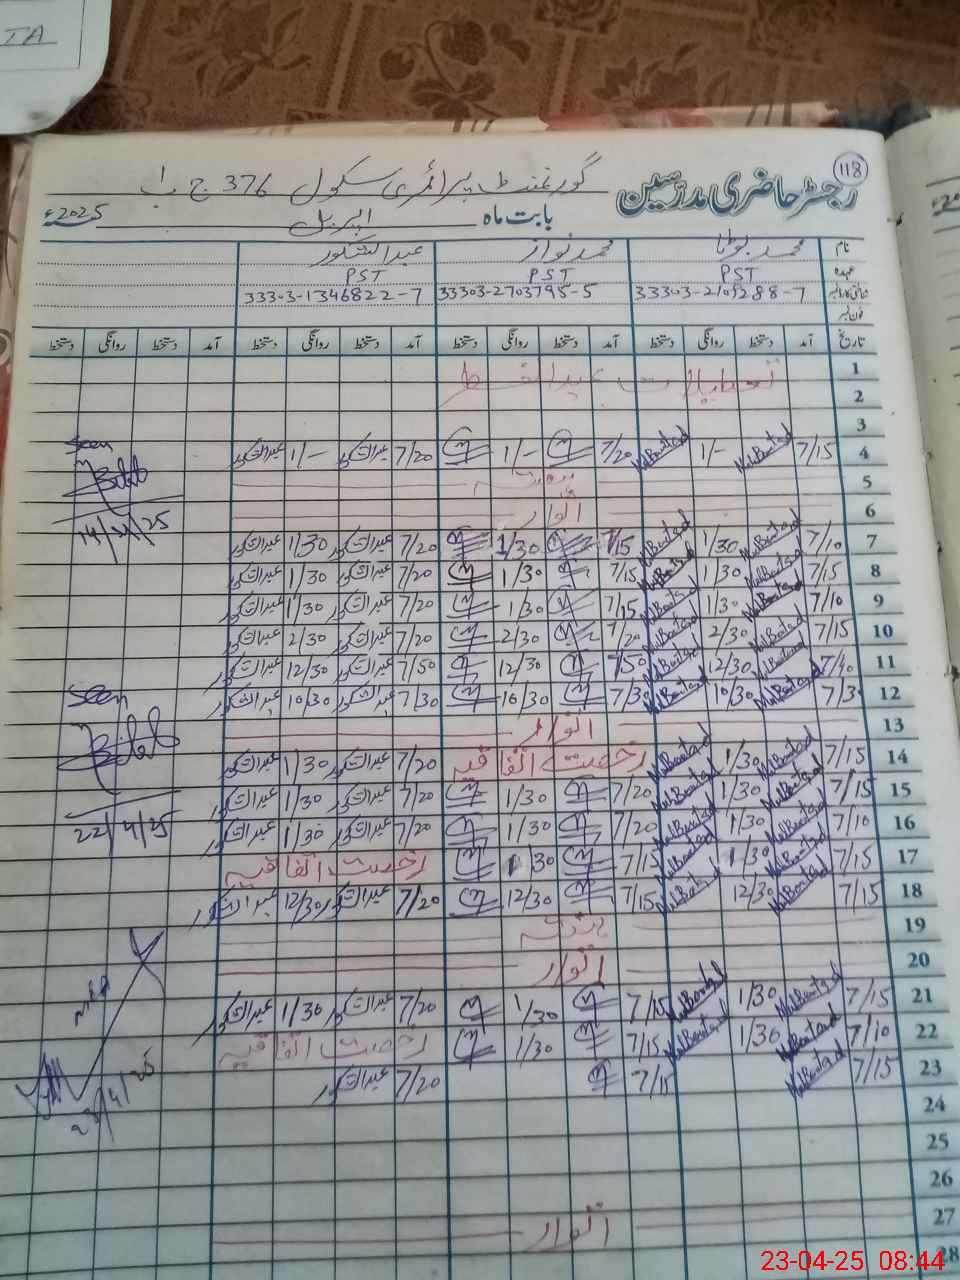 TA
118
رجسٹر حاضری مدرسین گورنمنٹ پرائمری سکول 376 ج ب
بابت ماہ اپریل 2025ء
نام محمد بوٹا محمد نواز عبدالشکور
عہدہ PST PST PST
33303-2109288-7 33303-2703795-5 33303-1346822-7
فون نمبر
تاریخ آمد دستخط روانگی دستخط آمد دستخط روانگی دستخط آمد دستخط روانگی دستخط آمد دستخط روانگی دستخط
1 تعطیلات عید الفطر
2
3
4 7/15 Md Bootad 1/- Md Bootad 7/20 1/- 7/20 عبدالشکور 1/- عبدالشکور
Seen
Bilal
14/4/25
5
6 اتوار
7 7/10 Md Bootad 1/30 Md Bootad 7/15 1/30 7/20 عبدالشکور 1/30 عبدالشکور
8 7/15 Md Bootad 1/30 Md Bootad 7/15 1/30 7/20 عبدالشکور 1/30 عبدالشکور
9 7/10 Md Bootad 1/30 Md Bootad 7/15 1/30 7/20 عبدالشکور 1/30 عبدالشکور
10 7/15 Md Bootad 2/30 Md Bootad 7/20 2/30 7/20 عبدالشکور 2/30 عبدالشکور
11 7/40 Md Bootad 12/30 Md Bootad 7/50 12/30 7/50 عبدالشکور 12/30 عبدالشکور
12 7/30 Md Bootad 10/30 Md Bootad 7/30 10/30 7/30 عبدالشکور 10/30 عبدالشکور
Seen
Bilal
22/4/25
13 اتوار
14 7/15 Md Bootad 1/30 Md Bootad رخصت اتفاقیہ 7/20 عبدالشکور 1/30 عبدالشکور
15 7/15 Md Bootad 1/30 Md Bootad 7/20 1/30 7/20 عبدالشکور 1/30 عبدالشکور
16 7/10 Md Bootad 1/30 Md Bootad 7/20 1/30 7/20 عبدالشکور 1/30 عبدالشکور
17 7/15 Md Bootad 1/30 Md Bootad 7/15 1/30 رخصت اتفاقیہ
18 7/15 Md Bootad 12/30 Md Bootad 7/15 12/30 7/20 عبدالشکور 12/30 عبدالشکور
19
20 اتوار
21 7/15 Md Bootad 1/30 Md Bootad 7/15 1/30 7/20 عبدالشکور 1/30 عبدالشکور
22 7/10 Md Bootad 1/30 Md Bootad 7/15 1/30 رخصت اتفاقیہ
23 7/15 Md Bootad 7/15 7/20 عبدالشکور
23/4/25
24
25
26
27 اتوار
28
23-04-25 08:44